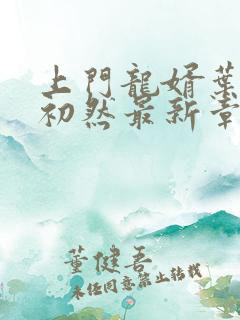 上門龍婿葉
初然最新章
董健吾
未经同意禁止转载